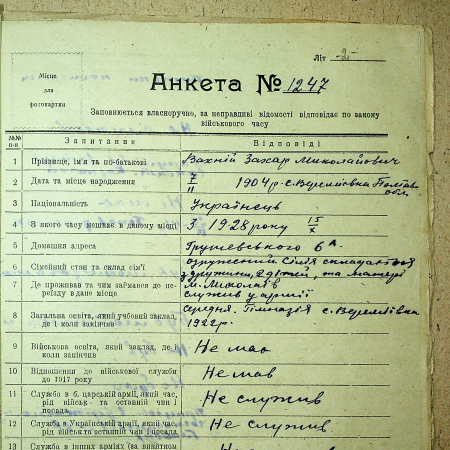 Літ -2-
Місце
для
фотокартки
Анкета № 1247
Заповнюється власноручно, за неправдиві відомості відповідає по закону
військового часу
№№ п-п Запитання Відповіді
1 Прізвище, ім'я та по-батькові Вахній Захар Миколайович
2 Дата та місце народження 7/II 1904 р. с. Веремівка Полтав. обл.
3 Національність Українець
4 З якого часу мешкає в даному місці З 1928 року 15/X
5 Домашня адреса Грушевського 6а
6 Сімейний стан та склад сім'ї одружений сім'я складається
з дружини, 2 дітей, та матері
7 Де проживав та чим займався до переїзду в дане місце м. Миколаїв
служив у армії
8 Загальна освіта, який учбовий заклад, де і коли закінчив середня. Гімназія с. Веремівка
1922 р.
9 Військова освіта, який заклад, де і
коли закінчив Не маю
10 Відношення до військової служби
до 1917 року Не мав
11 Служба в б. царській армії, який час,
рід військ та останній чин і
посада Не служив
12 Служба в Українській армії, який час,
рід військ та останній чин і посада Не служив
13 Служба в інших арміях (за винятком